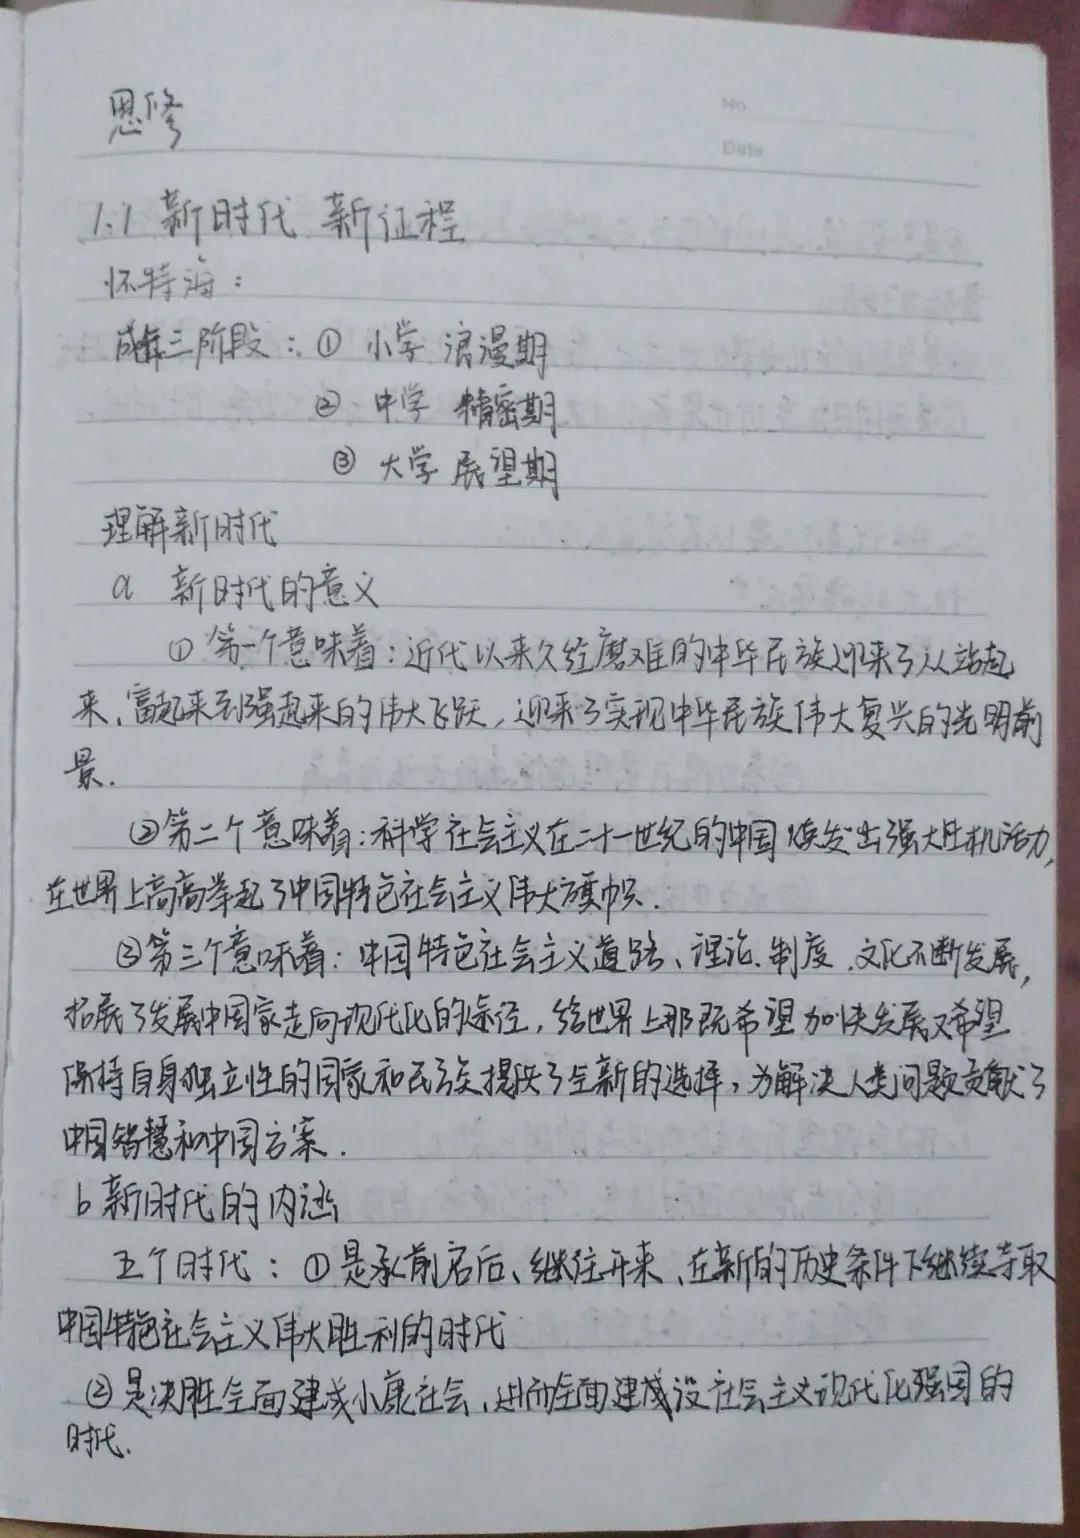 思修
No
Date
1.1 新时代 新征程
怀特海：
三阶段：① 小学 浪漫期
② 中学 精密期
③ 大学 展望期
理解新时代
a 新时代的意义
① 第一个意味着：近代以来久经磨难的中华民族迎来了从站起
来、富起来到强起来的伟大飞跃，迎来了实现中华民族伟大复兴的光明前
景.
②第二个意味着：科学社会主义在二十一世纪的中国焕发出强大生机活力，
在世界上高高举起了中国特色社会主义伟大旗帜.
③第三个意味着：中国特色社会主义道路、理论、制度、文化不断发展，
拓展了发展中国家走向现代化的途径，给世界上那既希望加快发展又希望
保持自身独立性的国家和民族提供了全新的选择，为解决人类问题贡献了
中国智慧和中国方案.
b 新时代的内涵
五个时代：①是承前启后、继往开来、在新的历史条件下继续夺取
中国特色社会主义伟大胜利的时代
②是决胜全面建成小康社会、进而全面建成设社会主义现代化强国的
时代.